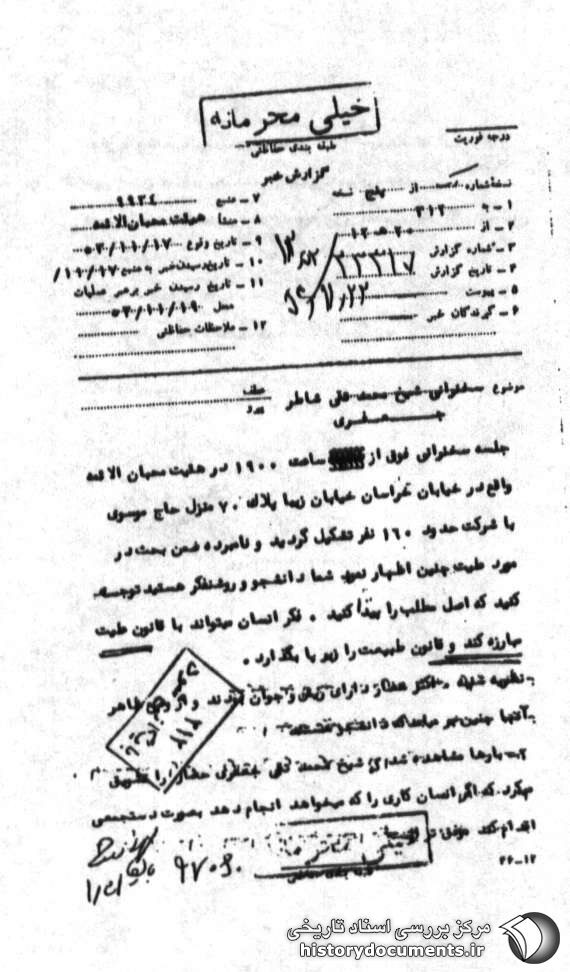 خیلی محرمانه
طبقه بندی حفاظتی
درجه فوریت
گزارش خبر
نسخه شماره از پنج نسخه
۱ ـ به ۳۱۲
۲ ـ از ۲۰ ه ۱۲
۳ ـ شماره گزارش ۲۳۳۱۷
۴ ـ تاریخ گزارش
۵ ـ پیوست
۶ ـ گیرندگان خبر
۷ ـ منبع ۹۹۳۴
۸ ـ منشأ هیئت محبان الائمه
۹ ـ تاریخ وقوع ۵۳/۱۱/۱۷
۱۰ ـ تاریخ رسیدن خبر به منبع ۱۱/۱۷/
۱۱ ـ تاریخ رسیدن خبر برهبر عملیات
محل ۵۳/۱۱/۱۹
۱۲ ـ ملاحظات حفاظتی
موضوع سخنرانی شیخ محمد تقی شاطر
جعفری
جلسه سخنرانی فوق از ساعت ۱۹۰۰ در هیئت محبان الائمه
واقع در خیابان خراسان خیابان زیبا پلاک ۷۰ منزل حاج موسوی
با شرکت حدود ۱۶۰ نفر تشکیل گردید و نامبرده ضمن بحث در
مورد طیت چنین اظهار نمود شما دانشجو و روشنفکر هستید توجه
کنید که اصل مطلب را پیدا کنید . فکر انسان میتواند با قانون طیت
مبارزه کند و قانون طبیعت را زیر پا بگذارد .
نظریه شنبه ـ اکثر حضار دارای ریش و جوان بودند و از ظاهر
آنها چنین بر میآمد که دانشجو هستند
۲ـ بارها مشاهده شده شیخ محمد تقی جعفری حضار را تشویق
میکرد که اگر انسان کاری را که میخواهد انجام دهد بصورت دستجمعی
اقدام کند موفق تر است
خیلی محرمانه
۲۶-۱۲
۹۷۰۹۰
مرکز بررسی اسناد تاریخی
historydocuments.ir